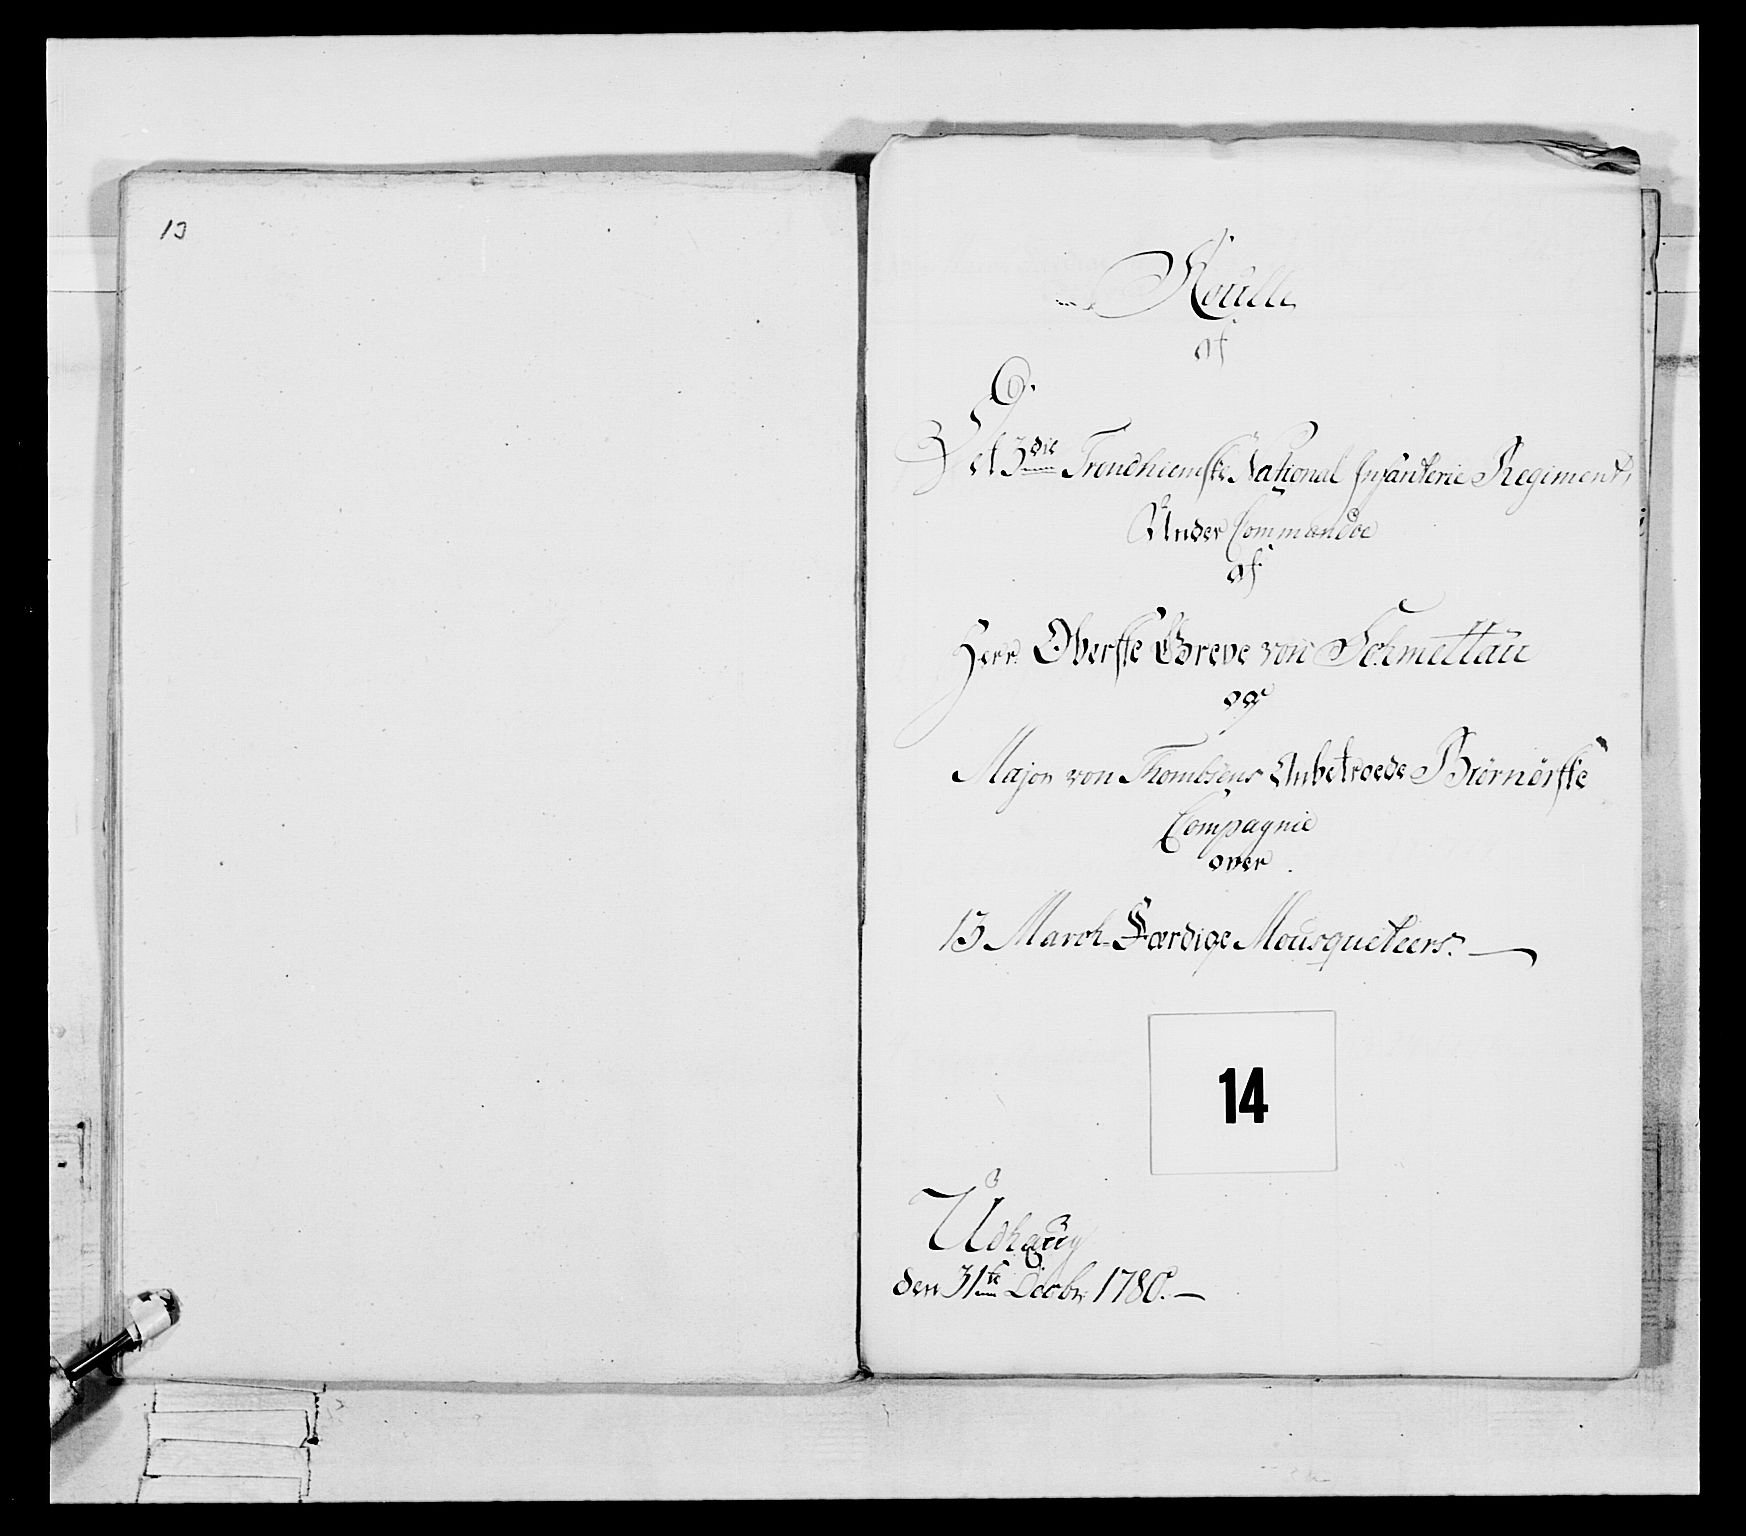 13
Roulle
af
Det 3die Trondhiemske National Infanterie Regiment,
Under Commandoe
af
Herr Oberste Greve von Schmettau
og
Major von Thombsens Anbetroede Biörnörske
Compagnie
over
13 March-Færdige Mousqueteers.
14
Udhaug
den 31te Decbr 1780.